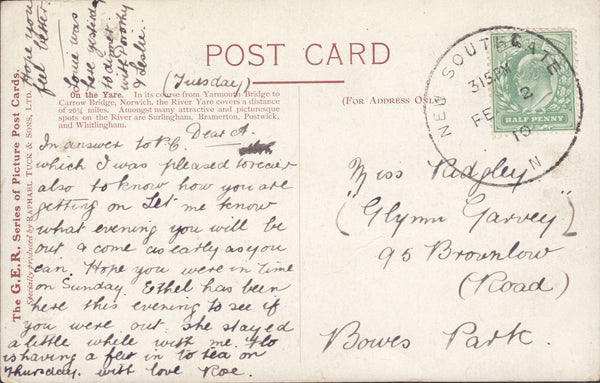 Hope you
feel better
Louie was
here yesterday
to dinner
with Dorothy
& Leslie.
POST CARD
(Tuesday)
On the Yare. In its course from Yarmouth Bridge to
Carrow Bridge, Norwich, the River Yare covers a distance
of 26¾ miles. Amongst many attractive and picturesque
spots on the River are Surlingham, Bramerton, Postwick,
and Whitlingham.
The G.E.R. Series of Picture Post Cards.
Specially produced by RAPHAEL TUCK & SONS, LTD.
Dear A.
In answer to P.C.
which I was pleased to receive
also to know how you are
getting on Let me know
what evening you will be
out & come as early as you
can. Hope you were in time
on Sunday. Ethel has been
here this evening to see if
you were out. She stayed
a little while with me. Flo
is having a few in to tea on
Thursday. with love Roe.
(FOR ADDRESS ONLY)
NEW SOUTHGATE
3 15 PM
FE 2
10
N
HALF PENNY
Miss Ridgley
"Glynn Garvey"
95 Brownlow
(Road)
Bowes Park.